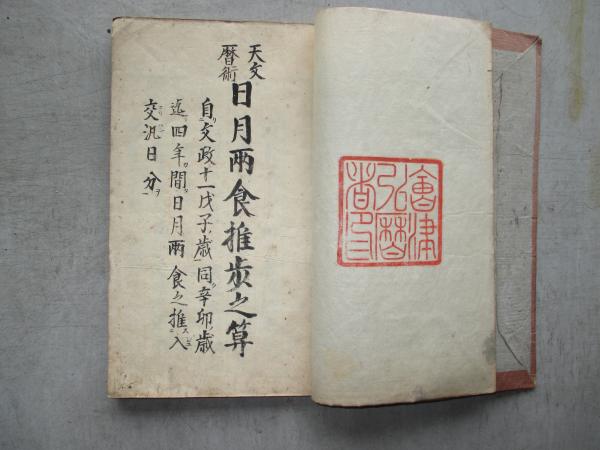 天文
暦術
日月兩食推歩之算
自文政十一戊子歳同辛卯歳
迄四年間日月兩食之推入
交汎日分
會津
弘暦